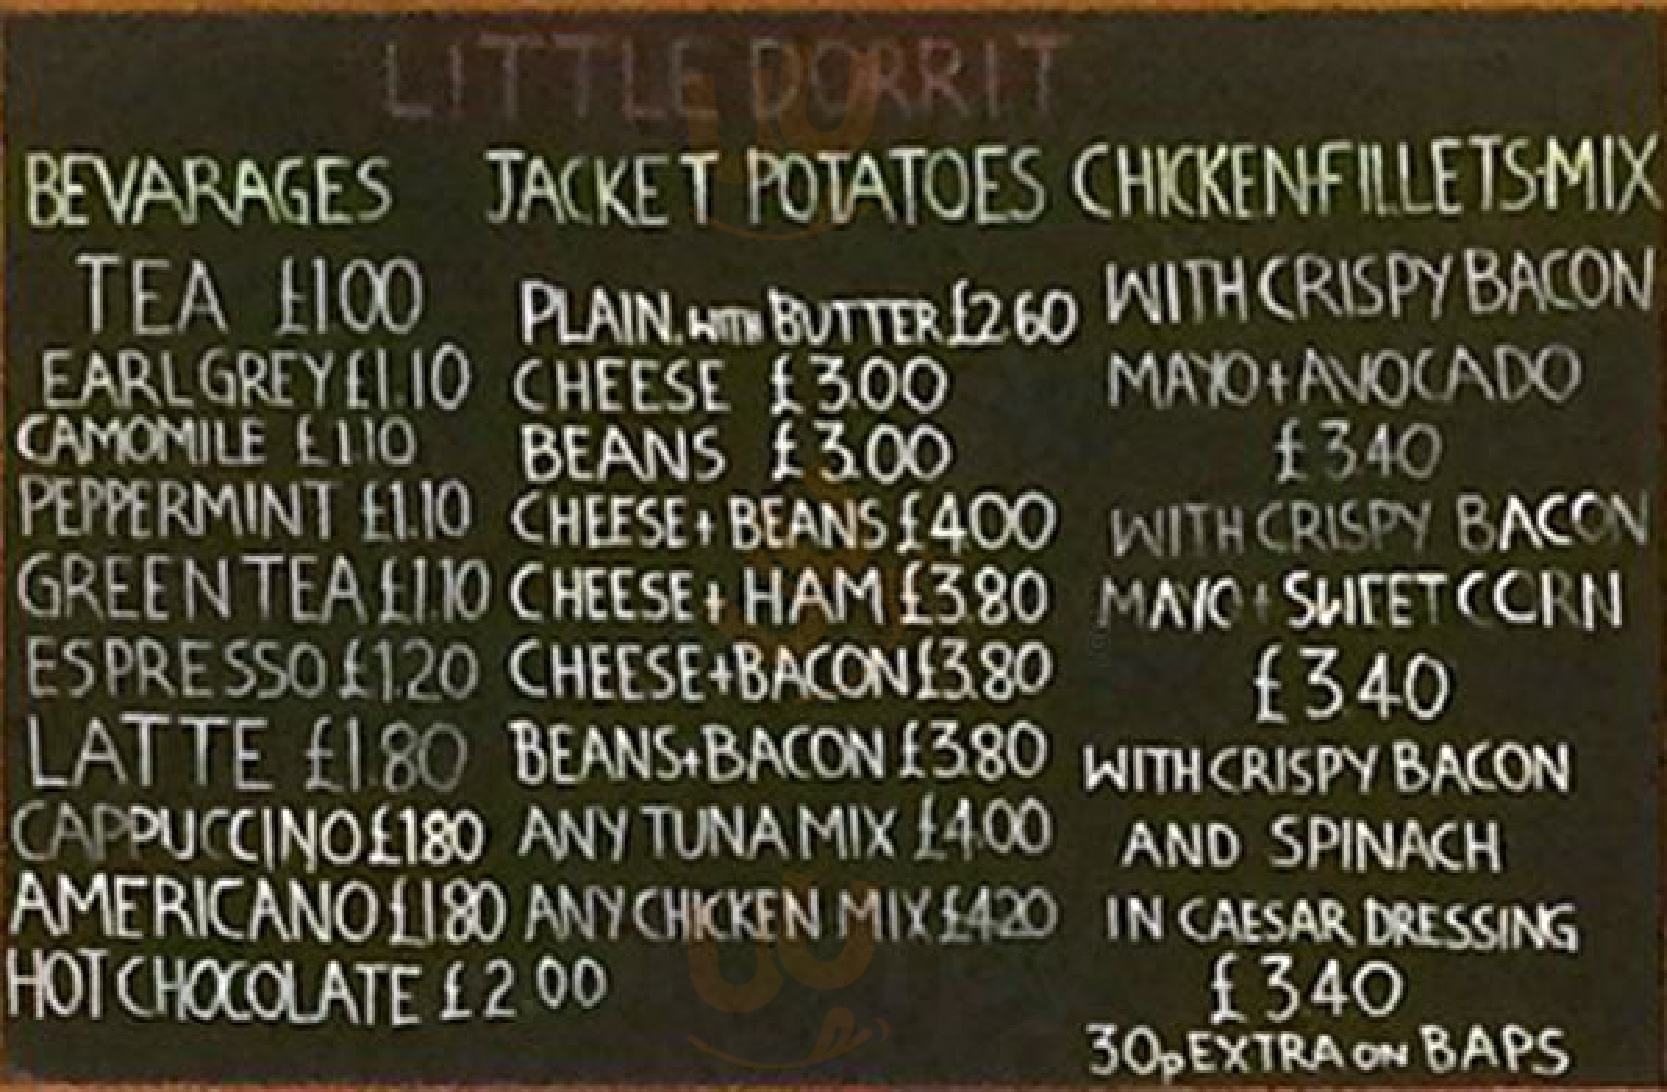 LITTLE DORRIT
BEVARAGES
TEA £1.00
EARL GREY £1.10
CAMOMILE £1.10
PEPPERMINT £1.10
GREEN TEA £1.10
ESPRESSO £1.20
LATTE £1.80
CAPPUCCINO £1.80
AMERICANO £1.80
HOT CHOCOLATE £2.00
JACKET POTATOES
PLAIN. WITH BUTTER £2.60
CHEESE £3.00
BEANS £3.00
CHEESE + BEANS £4.00
CHEESE + HAM £3.80
CHEESE + BACON £3.80
BEANS + BACON £3.80
ANY TUNA MIX £4.00
ANY CHICKEN MIX £4.20
CHICKEN-FILLETS-MIX
WITH CRISPY BACON
MAYO + AVOCADO
£3.40
WITH CRISPY BACON
MAYO + SWEETCORN
£3.40
WITH CRISPY BACON
AND SPINACH
IN CAESAR DRESSING
£3.40
30p EXTRA ON BAPS